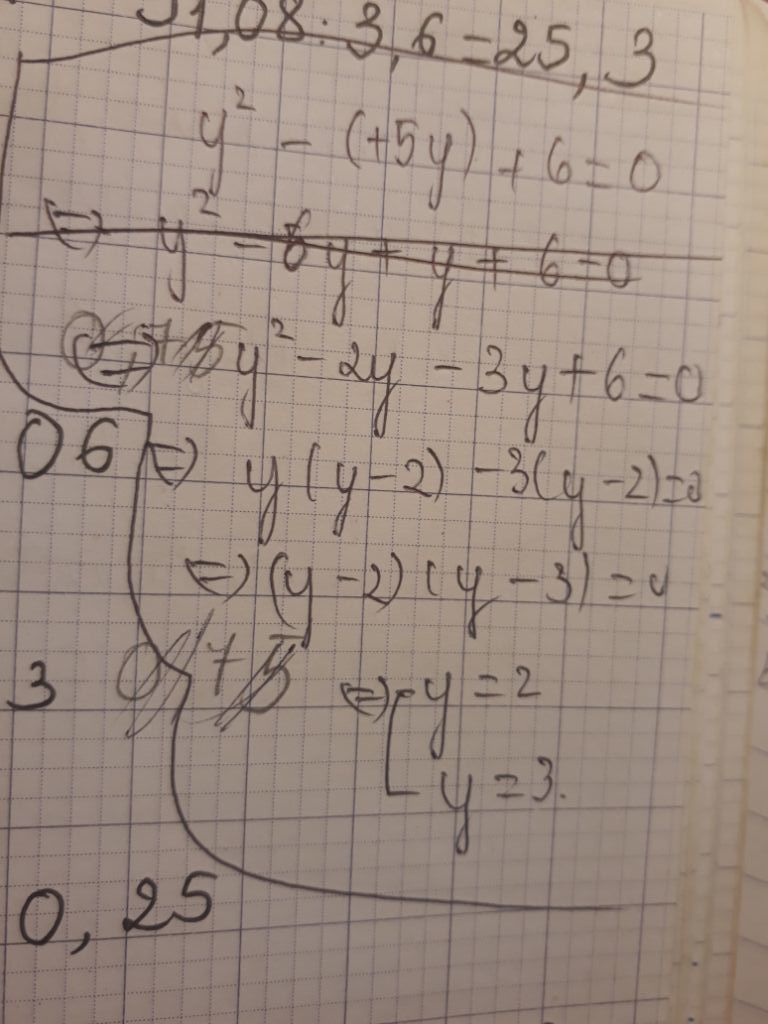 91,08 : 3,6 = 25,3
y² - (+5y) + 6 = 0
⇔ y² - 6y + y + 6 = 0
⇔ y² - 2y - 3y + 6 = 0
06 ⇔ y(y-2) - 3(y-2) = 0
⇔ (y-2)(y-3) = 0
3 ⇔ [ y = 2
y = 3.
0,25